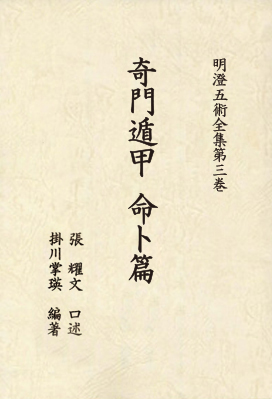 明澄五術全集第三巻
奇門遁甲 命卜篇
張耀文 口述
掛川掌瑛 編著